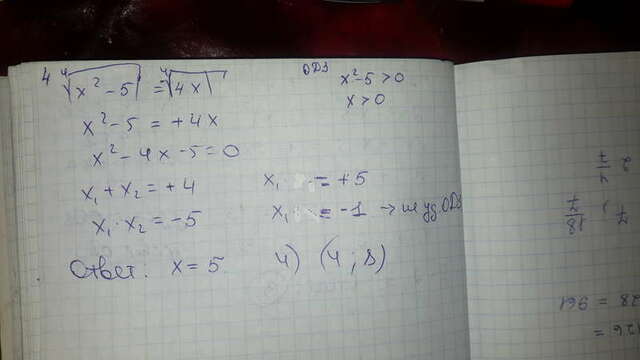 4 ∜x² - 5 = ∜4x
ОДЗ
x² - 5 > 0
x > 0
x² - 5 = +4x
x² - 4x - 5 = 0
x₁ + x₂ = +4
x₁ · x₂ = -5
x₁ = +5
x₁ = -1 → не уд. ОДЗ
Ответ: x = 5
4) (4; 8)
2
4/7
7
18/7
28 = 961